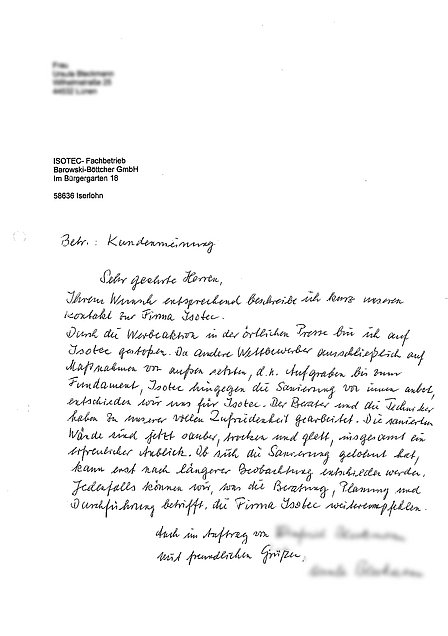 Frau
ISOTEC- Fachbetrieb
Barowski-Böttcher GmbH
Im Bürgergarten 18
58636 Iserlohn
Betr.: Kundenmeinung
Sehr geehrte Herren,
Ihrem Wunsch entsprechend beschreibe ich kurz unseren
Kontakt zur Firma Isotec.
Durch die Werbeaktion in der örtlichen Presse bin ich auf
Isotec gestoßen. Da andere Wettbewerber ausschließlich auf
Maßnahmen von außen setzten, d.h. Aufgraben bis zum
Fundament, Isotec hingegen die Sanierung von innen anbot,
entschieden wir uns für Isotec. Der Berater und die Techniker
haben zu unserer vollen Zufriedenheit gearbeitet. Die sanierten
Wände sind jetzt sauber, trocken und glatt, insgesamt ein
erfreulicher Anblick. Ob sich die Sanierung gelohnt hat,
kann erst nach längerer Beobachtung entschieden werden.
Jedenfalls können wir, was die Beratung, Planung und
Durchführung betrifft, die Firma Isotec weiterempfehlen.
auch im Auftrag von
mit freundlichen Grüßen,